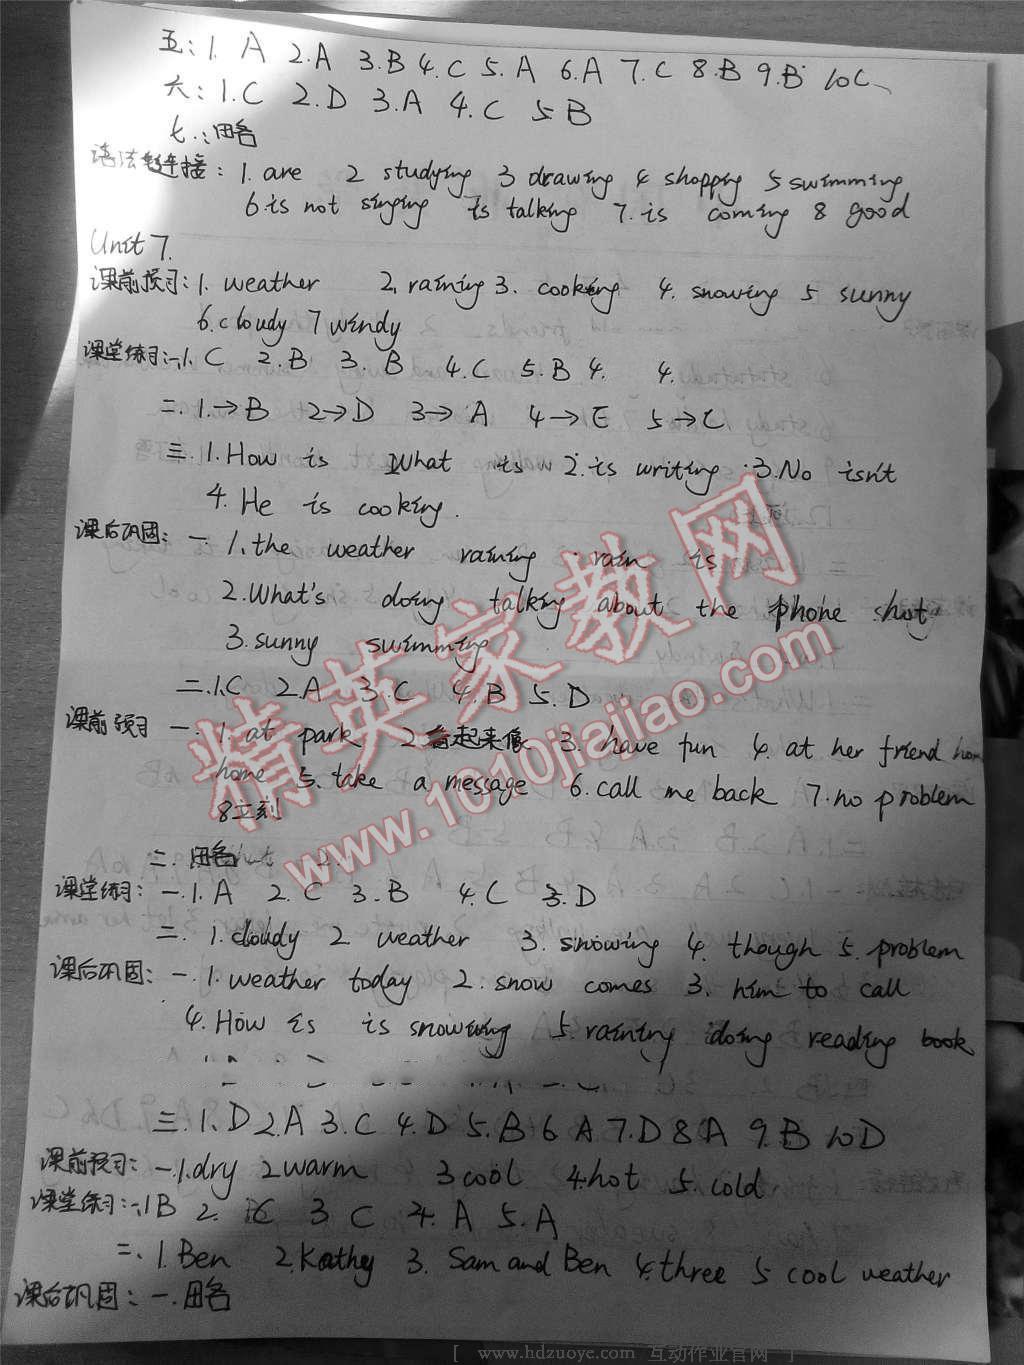 五: 1. A 2. A 3. B 4. C 5. A 6. A 7. C 8. B 9. B 10C、
六: 1. C 2. D 3. A 4. C 5B
七.: 略
语法链接: 1. are 2 studying 3 drawing 4 shopping 5 swimming
6. is not singing is talking 7. is coming 8 good
Unit 7.
课前预习: 1. weather 2, raining 3. cooking 4. snowing 5 sunny
6. cloudy 7 windy
课堂练习: 一. 1. C 2. B 3. B 4. C 5. B 4. 4.
二. 1.→B 2→D 3→A 4→E 5→C
三. 1. How is What is 2. is writing 3. No isn't
4. He is cooking.
课后巩固: 一. 1. the weather raining rain is
2. What's doing talking about the phone shot
3. sunny swimming
二. 1. C 2. A 3. C 4. B 5. D
课前预习 一. 1. at park 2. 看起来像 3. have fun 4. at her friend hom
home 5. take a message 6. call me back 7. no problem
8立刻
二. 略
课堂练习: 一. 1. A 2. C 3. B 4. C 5. D
二. 1. cloudy 2 weather 3. snowing 4. though 5. problem
课后巩固: 一. 1. weather today 2. snow comes 3. him to call
4. How is is snowing 5. raining doing reading book
三. 1. D 2. A 3. C 4. D 5. B 6 A 7. D 8 A 9. B 10 D
课前预习: 一. 1. dry 2 warm 3 cool 4. hot 5. cold
课堂练习: 一. 1B 2. C 3. C 4. A 5. A
二. 1. Ben 2. Kathy 3. Sam and Ben 4. three 5 cool weather
课后巩固: 一. 略
精英家教网
www.1010jiajiao.com
[ www.hdzuoye.com 互动作业官网 ]